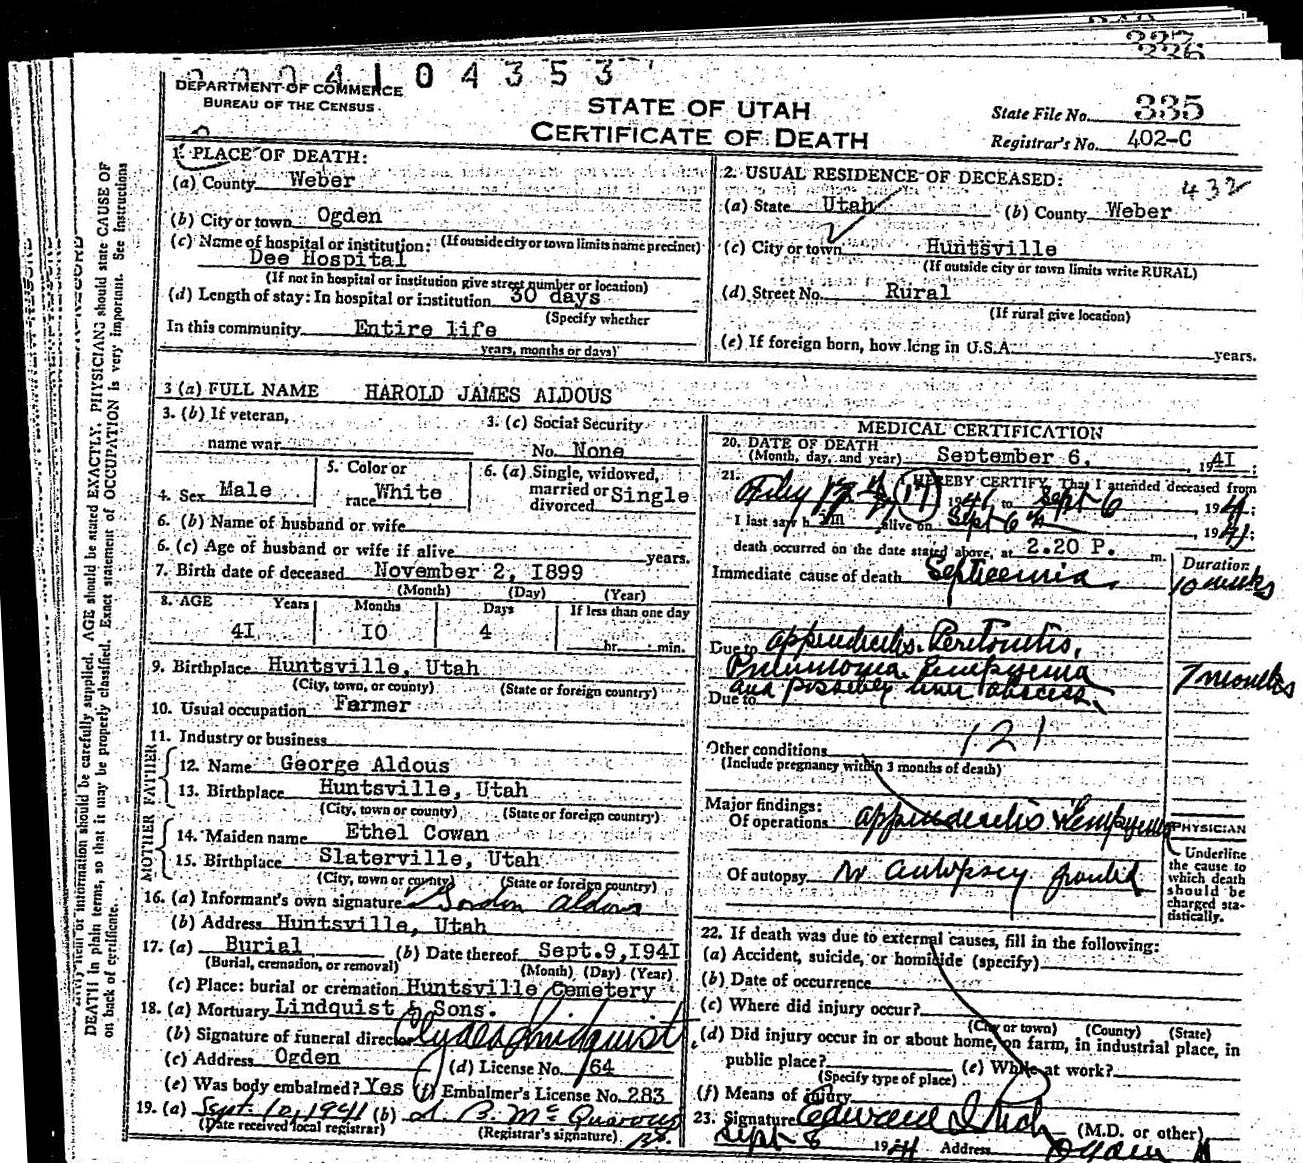 337
336
0004104353
DEPARTMENT OF COMMERCE
BUREAU OF THE CENSUS
STATE OF UTAH
CERTIFICATE OF DEATH
State File No. 335
Registrar's No. 402-C
1. PLACE OF DEATH:
(a) County Weber
(b) City or town Ogden
(c) Name of hospital or institution: (If outside city or town limits name precinct)
Dee Hospital
(If not in hospital or institution give street number or location)
(d) Length of stay: In hospital or institution 30 days
(Specify whether
In this community Entire life
years, months or days)
2. USUAL RESIDENCE OF DECEASED: 432
(a) State Utah (b) County Weber
(c) City or town Huntsville
(If outside city or town limits write RURAL)
(d) Street No. Rural
(If rural give location)
(e) If foreign born, how long in U.S.A. years.
3 (a) FULL NAME HAROLD JAMES ALDOUS
3. (b) If veteran,
name war
3. (c) Social Security
No. None
4. Sex Male
5. Color or
race White
6. (a) Single, widowed,
married or
divorced Single
6. (b) Name of husband or wife
6. (c) Age of husband or wife if alive years.
7. Birth date of deceased November 2, 1899
(Month) (Day) (Year)
8. AGE Years Months Days If less than one day
41 10 4 hr. min.
9. Birthplace Huntsville, Utah
(City, town, or county) (State or foreign country)
10. Usual occupation Farmer
11. Industry or business
FATHER
12. Name George Aldous
13. Birthplace Huntsville, Utah
(City, town or county) (State or foreign country)
MOTHER
14. Maiden name Ethel Cowan
15. Birthplace Slaterville, Utah
(City, town or county) (State or foreign country)
16. (a) Informant's own signature Gordon Aldous
(b) Address Huntsville, Utah
17. (a) Burial (b) Date thereof Sept. 9, 1941
(Burial, cremation, or removal) (Month) (Day) (Year)
(c) Place: burial or cremation Huntsville Cemetery
18. (a) Mortuary Lindquist & Sons.
(b) Signature of funeral director Clyde Lindquist
(c) Address Ogden (d) License No. 164
(e) Was body embalmed? Yes (f) Embalmer's License No. 283
19. (a) Sept. 10, 1941 (b)
(Date received local registrar) (Registrar's signature)
MEDICAL CERTIFICATION
20. DATE OF DEATH
(Month, day, and year) September 6, 1941;
21. I HEREBY CERTIFY, That I attended deceased from
17 1941 to Sept 6 1941;
I last saw him alive on Sept 6th 1941;
death occurred on the date stated above, at 2.20 P. m.
Duration
Immediate cause of death Septicemia. 10 weeks
Due to appendicitis. Peritonitis,
Pneumonia. Empyema 7 months
and possibly liver abscess.
Due to
121
Other conditions
(Include pregnancy within 3 months of death)
Major findings:
Of operations appendicitis & empyema
Of autopsy no autopsy granted
PHYSICIAN
Underline
the cause to
which death
should be
charged sta-
tistically.
22. If death was due to external causes, fill in the following:
(a) Accident, suicide, or homicide (specify)
(b) Date of occurrence
(c) Where did injury occur?
(City or town) (County) (State)
(d) Did injury occur in or about home, on farm, in industrial place, in
public place? (e) While at work?
(Specify type of place)
(f) Means of injury
23. Signature Edward I Rich (M.D. or other)
Sept 8 1941 Address Ogden
AGE should be stated EXACTLY. PHYSICIAN should state CAUSE OF
DEATH in plain terms, so that it may be properly classified. Exact statement of OCCUPATION is very important. See instructions
on back of certificate.